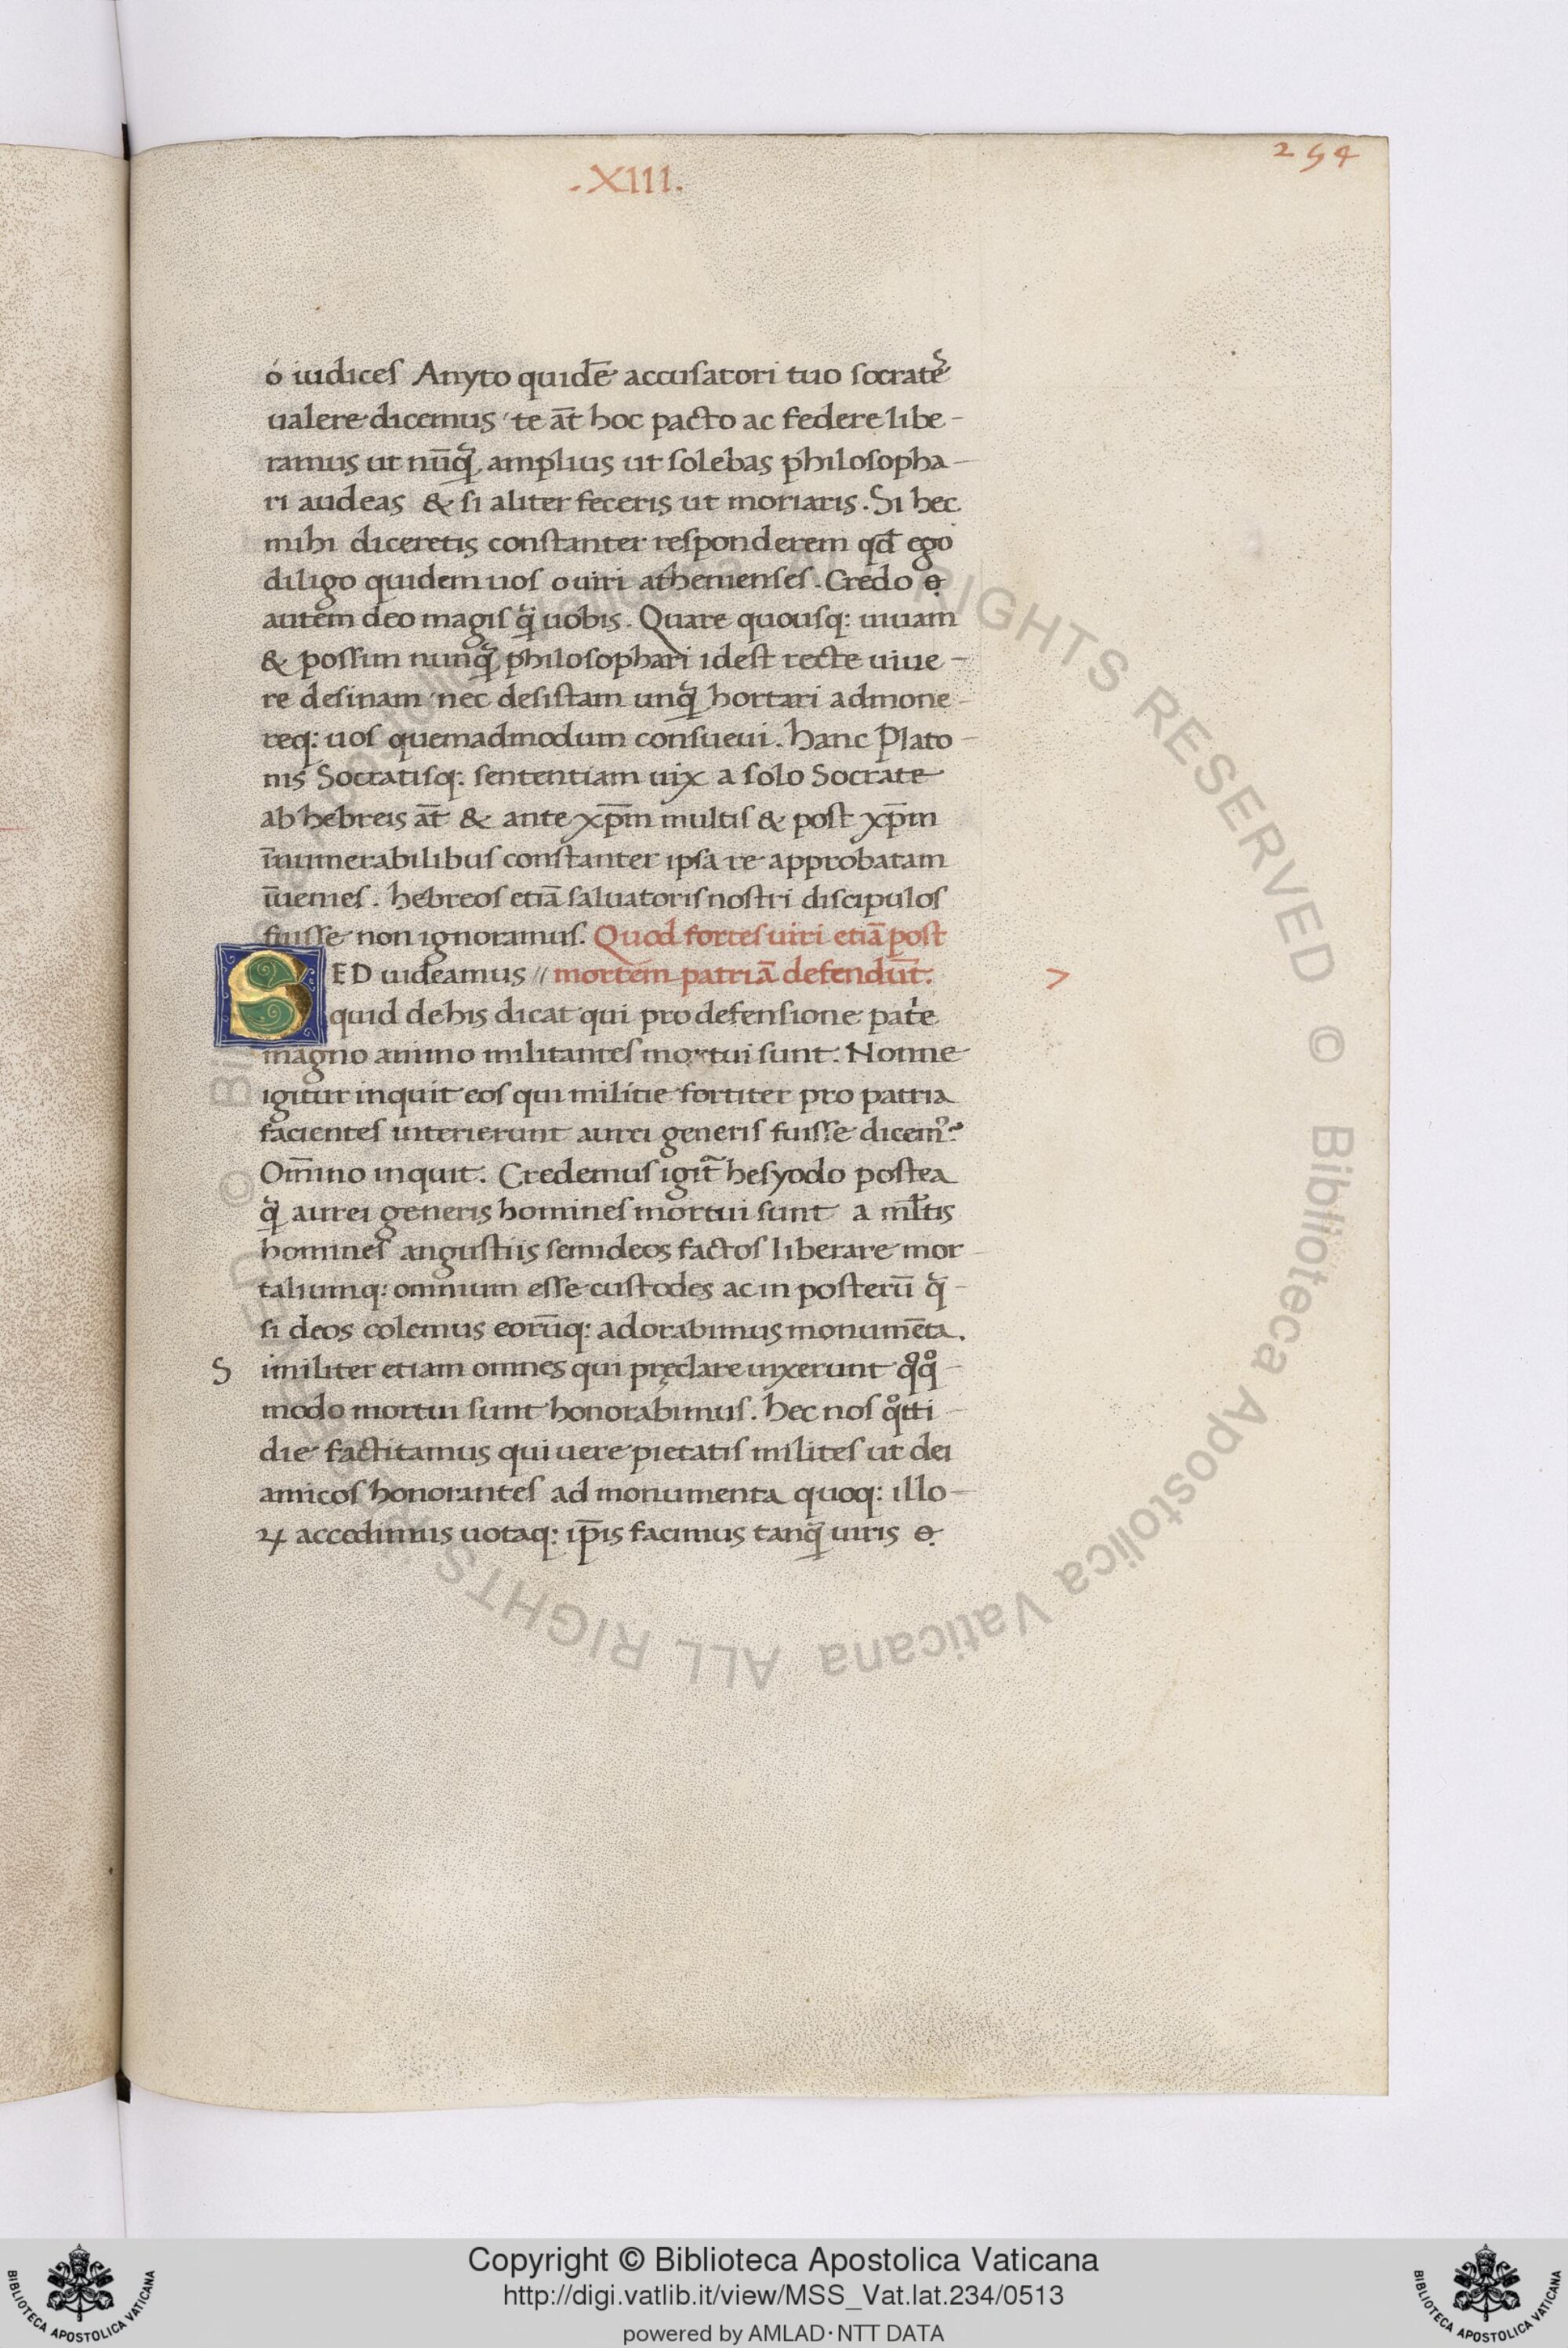 .XIII.
254
ó iudiceſ Anyto quidē accuſatori tuo ſocrateˢ
ualere dicemus te āt hoc pacto ac federe libe-
ramus ut nūqᷓ amplius ut ſolebas philoſopha-
ri audeas & ſi aliter feceris ut moriaris. Si hec
mihi diceretis conſtanter reſponderem qd̄ ego
diligo quidem uoſ o uiri athenienſeſ. Credo ꝋ
autem deo magiſ qᷓ uobis. Quare quouſq: uiuam
& poſſim nunqᷓ philoſophari ideſt recte uiue-
re deſinam nec deſiſtam unqᷓ hortari admone-
req: uoſ quemadmodum conſueui. hanc Plato-
nis Socratiſq: sententiam uix a ſolo Socrate
ab hebreis āt & ante xp̄m multiſ & poſt xp̄m
īnumerabilibuſ conſtanter ipſa re approbatam
īuenieſ. hebreoſ etiā ſaluatoriſ noſtri diſcipuloſ
fuiſſe non ignoramuſ. Quod forteſ uiri etiā poſt
SED uideamus // mortem patriā defendūt.
quid de his dicat qui pro defenſione pat̍e
magno animo militanteſ mortui ſunt. Nonne
igitur inquit eoſ qui militie fortiter pro patria
facienteſ interierunt aurei generiſ fuiſſe dicemꝰ?
Om̄ino inquit. Credemuſ igit᷑ heſyodo poſtea
qᷓ aurei generis homineſ mortui ſunt a ml̄tis
homineſ anguſtiis ſemideos factoſ liberare mor-
taliumq: omnium eſſe cuſtodes ac in poſterū qᷓ-
ſi deos colemus eorūq: adorabimus monumēta.
Similiter etiam omnes qui pręclare uixerunt qͦqͦ-
modo mortui ſunt honorabimuſ. hec noſ qͦtti-
die factitamus qui uere pietatiſ militeſ ut dei
amicoſ honoranteſ ad monumenta quoq: illo-
ꝝ accedimus uotaq: ip̄is facimus tanqᷓ uiris ꝋ
Copyright © Biblioteca Apostolica Vaticana
http://digi.vatlib.it/view/MSS_Vat.lat.234/0513
powered by AMLAD·NTT DATA
BIBLIOTECA APOSTOLICA VATICANA
BIBLIOTECA APOSTOLICA VATICANA